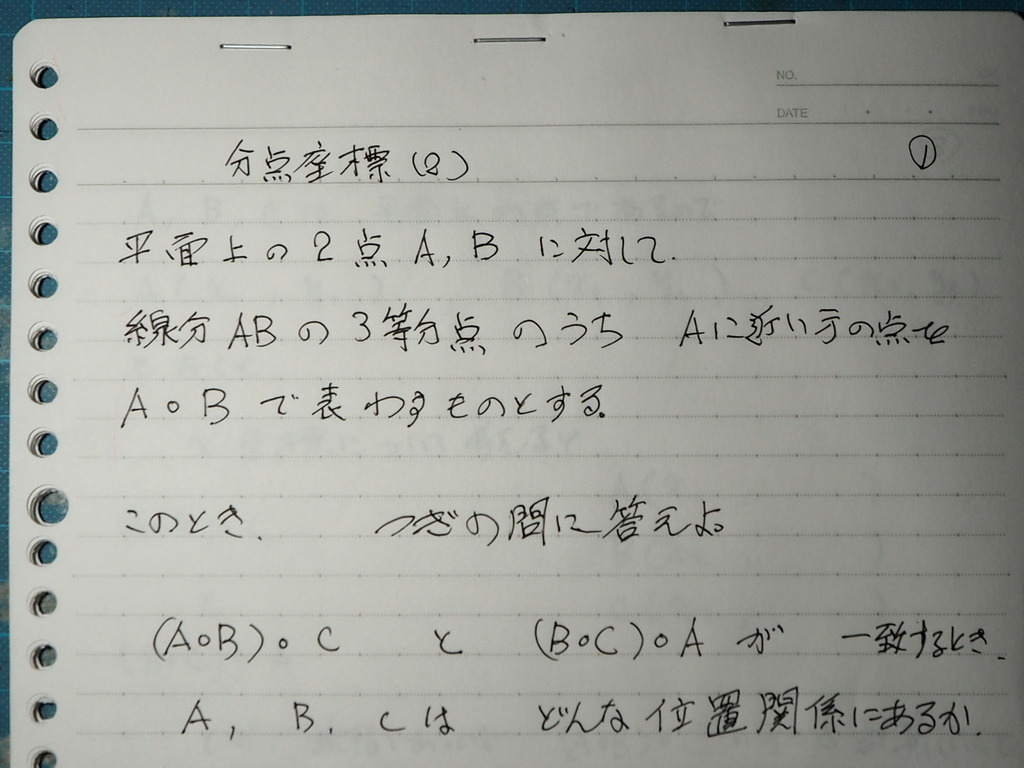 NO.
DATE
分点座標(8) ①
平面上の2点 A, B に対して.
線分ABの3等分点のうち Aに近い方の点を
A∘B で表わすものとする。
このとき、 つぎの問に答えよ。
(A∘B)∘C と (B∘C)∘A が 一致するとき、
A, B, Cは どんな位置関係にあるか.